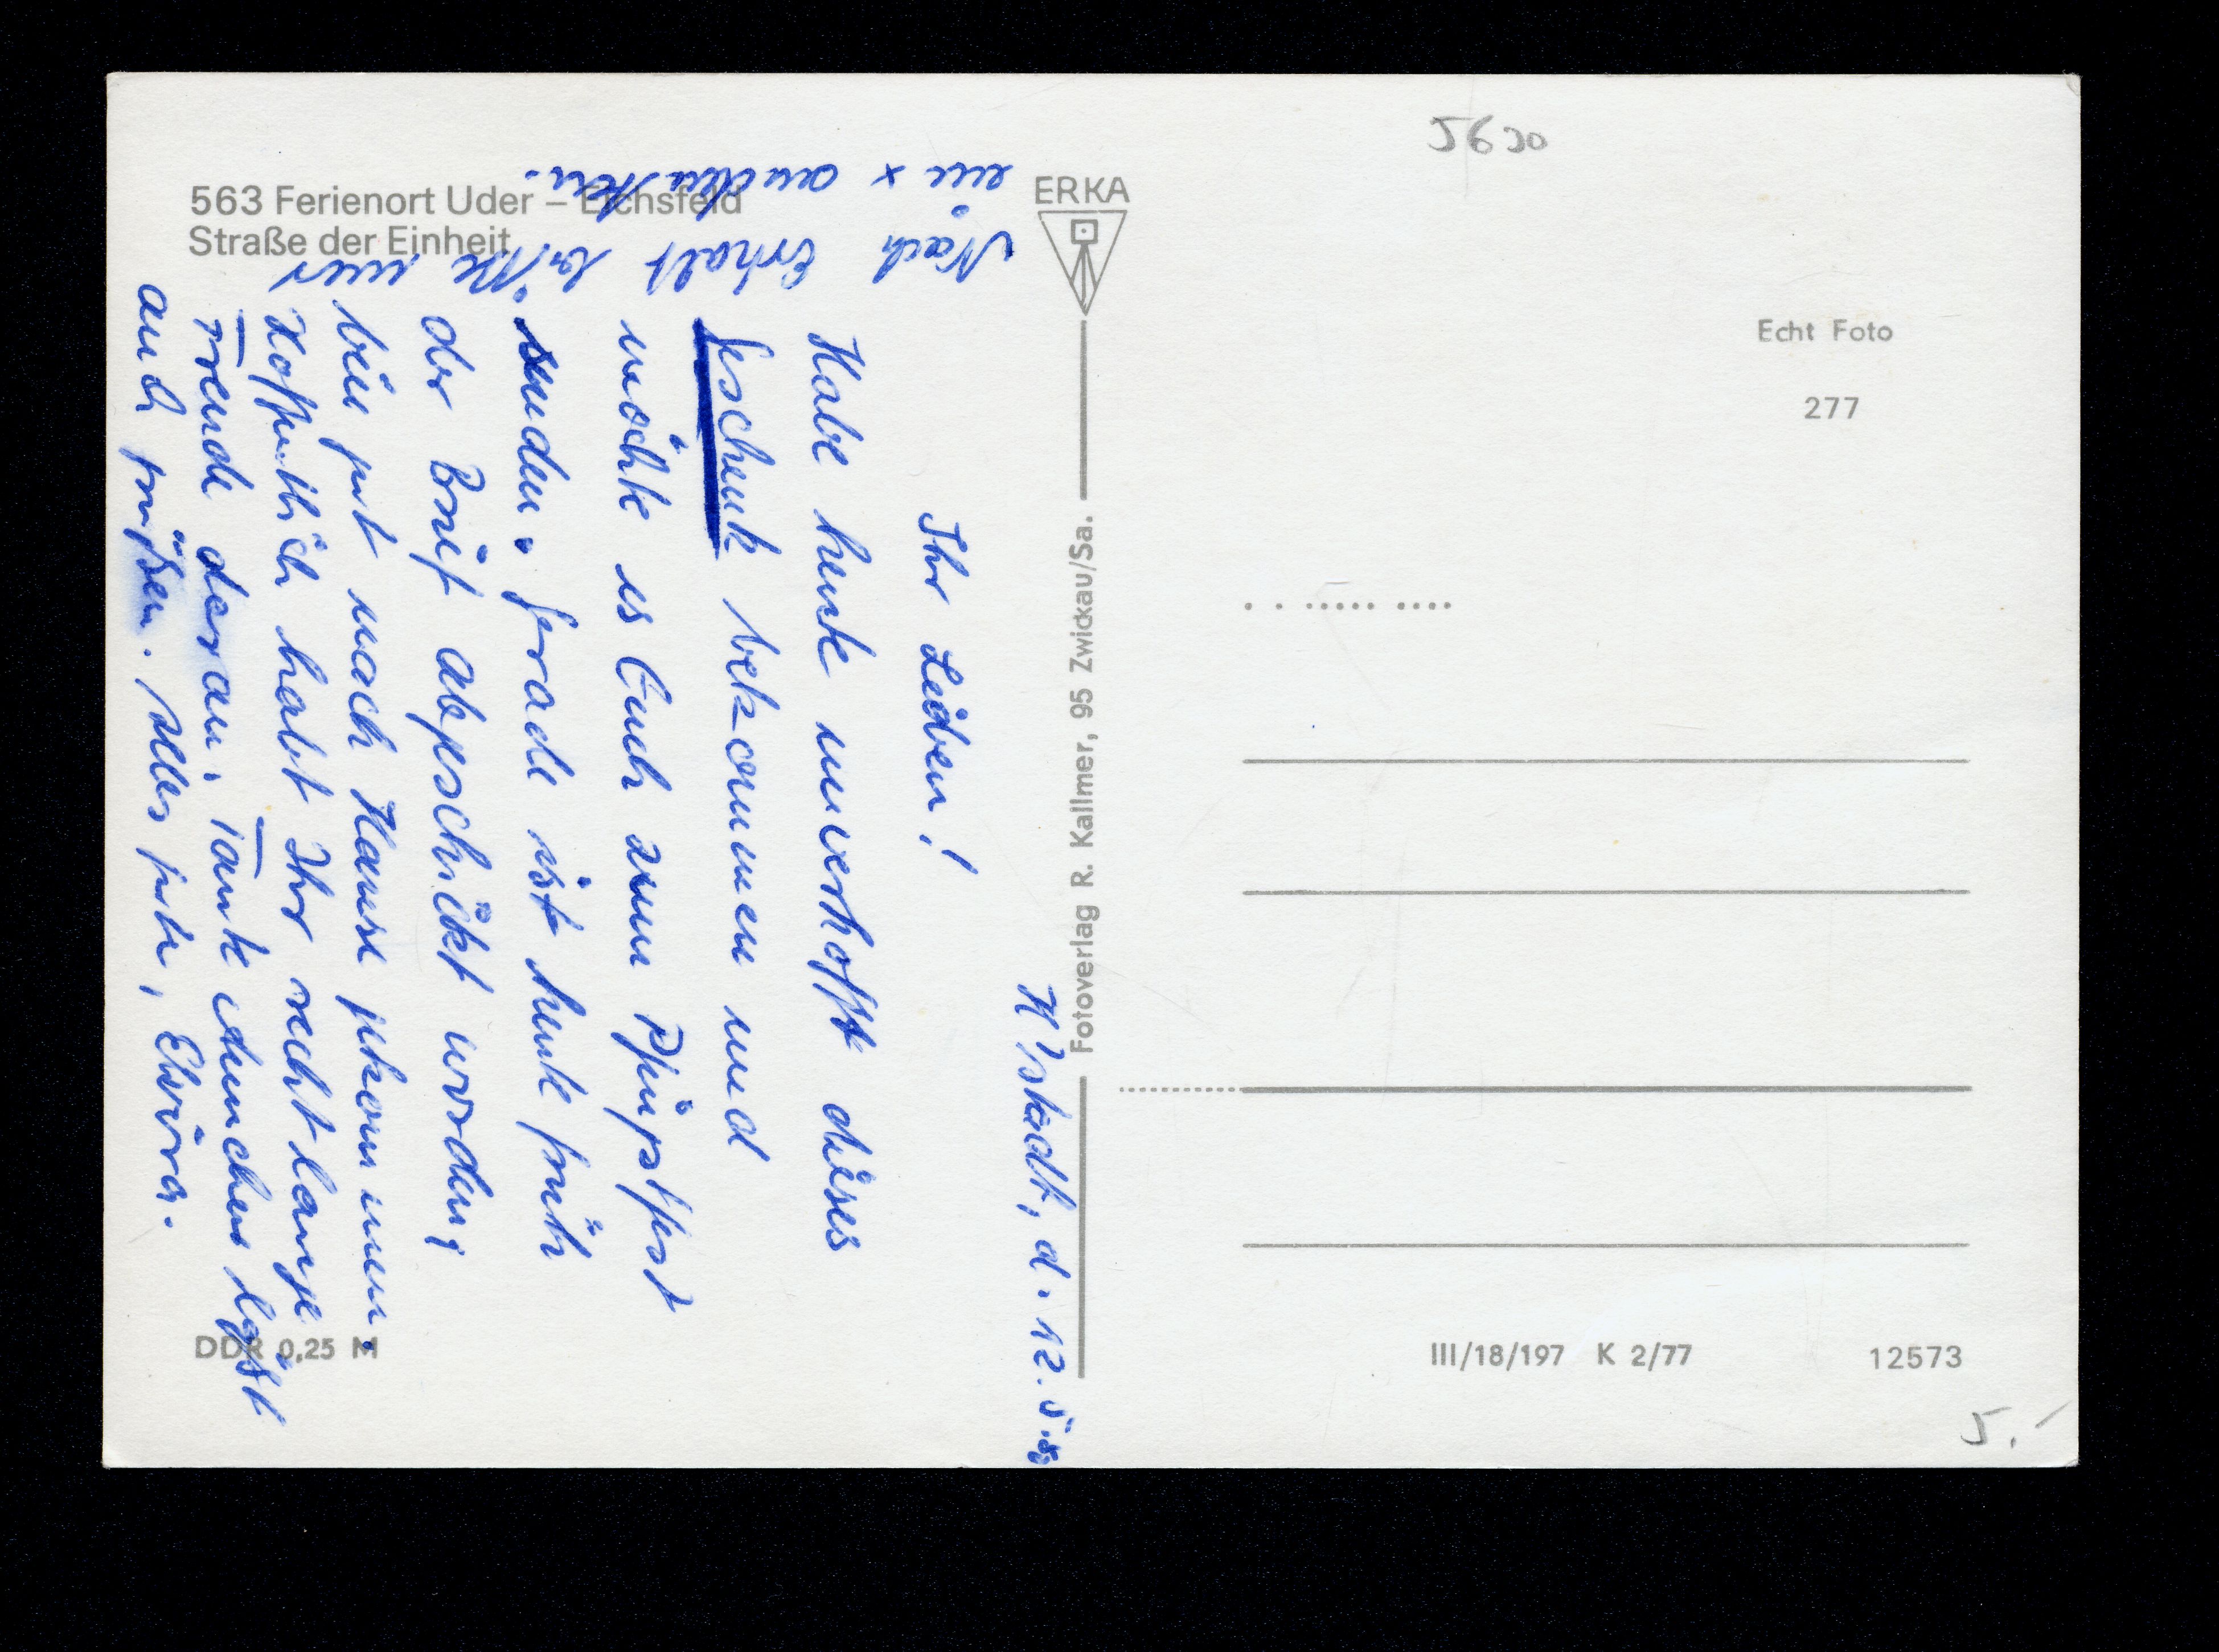 563 Ferienort Uder – Eichsfeld
Straße der Einheit
H'stadt, d. 12. 5.
Ihr Lieben!
Habe heute unverhofft dieses
Geschenk bekommen und
möchte es Euch zum Pfingstfest
senden. Gerade ist heute früh
der Brief abgeschickt worden,
bin gut nach Hause gekommen.
Hoffentlich habt Ihr recht lange
Freude daran. Tante Ännchen läßt
auch grüßen. Alles gute, Elvira.
Nach Erhalt bitte nur
ein x anläuten.
DDR 0,25 M
ERKA
Fotoverlag R. Kallmer, 95 Zwickau/Sa.
5630
Echt Foto
277
III/18/197 K 2/77
12573
5.-